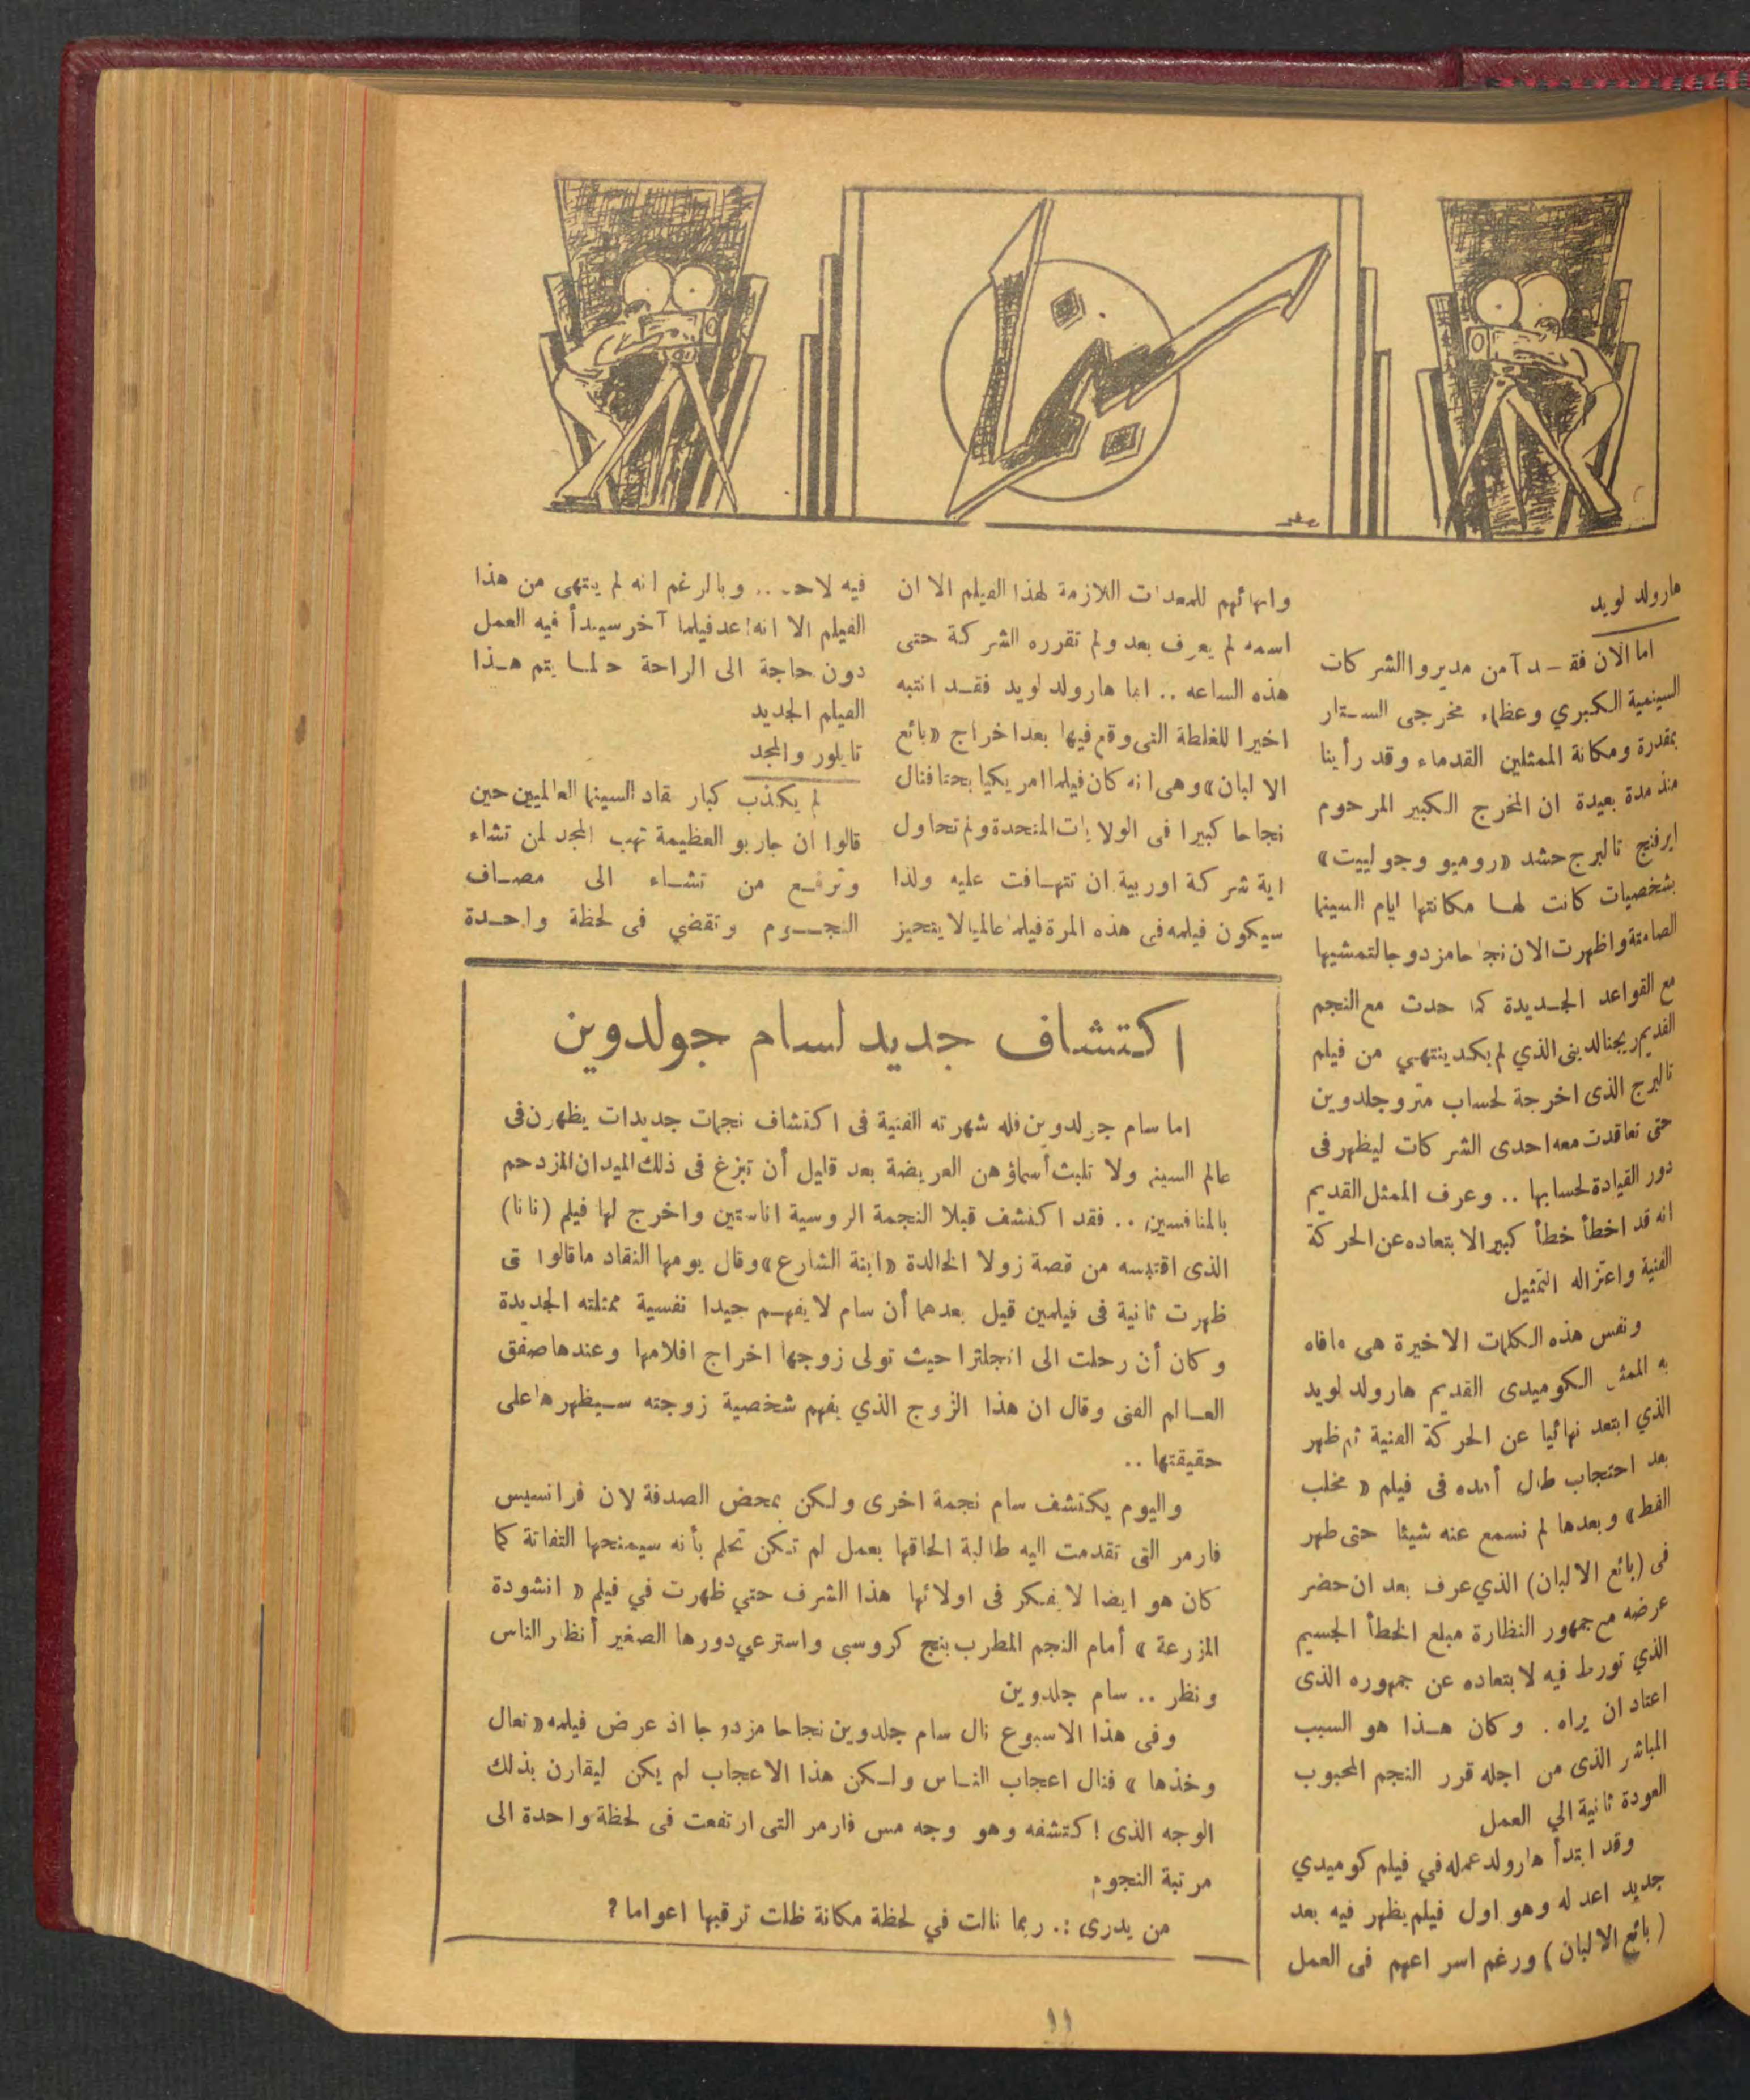 سينما
هارولد لويد
اما الآن فقـد آمن مديروا الشركات
السينمية الكبري وعظماء مخرجى الستار
بمقدرة ومكانة الممثلين القدماء وقد رأينا
منذ مدة بعيدة ان المخرج الكبير المرحوم
ايرفنج تالبرج حشد «روميو وجولييت»
بشخصيات كانت لها مكانتها ايام السينما
الصامتة واظهرت الان نجاحا مزدوجا لتمشيها
مع القواعد الجديدة كما حدث مع النجم
القديم ريجنالد ينى الذي لم يكد ينتهي من فيلم
تالبرج الذى اخرجة لحساب متروجلدوين
حتى تعاقدت معه احدى الشركات ليظهر فى
دور القيادة لحسابها .. وعرف الممثل القديم
انه قد اخطأ خطأ كبيرا لابتعاده عن الحركة
الفنية واعتزاله التمثيل
ونفس هذه الكلمات الاخيرة هى مافاه
به الممثل الكوميدى القديم هارولد لويد
الذي ابتعد نهائيا عن الحركة الفنية ثم ظهر
بعد احتجاب طال أمده فى فيلم « مخلب
القط» وبعدها لم نسمع عنه شيئا حتى ظهر
فى (بائع الالبان) الذي عرف بعد ان حضر
عرضه مع جمهور النظارة مبلغ الخطأ الجسيم
الذي تورط فيه لابتعاده عن جمهوره الذى
اعتاد ان يراه . وكان هـذا هو السبب
المباشر الذى من اجله قرر النجم المحبوب
العودة ثانية الي العمل
وقد ابتدأ هارولد عمله في فيلم كوميدي
جديد اعد له وهو اول فيلم يظهر فيه بعد
( بائع الالبان ) ورغم اسراعهم فى العمل
وانهائهم للمعدات اللازمة لهذا الفيلم الا ان
اسمه لم يعرف بعد ولم تقرره الشركة حتى
هذه الساعه .. اما هارولد لويد فقـد انتبه
اخيرا للغلطة التى وقع فيها بعد اخراج «بائع
الالبان» وهى انه كان فيلما امريكيا بحتا فنال
نجاحا كبيرا فى الولايات المتحدة ولم تحاول
اية شركة اوربية ان تتهـافت عليه ولذا
سيكون فيلمه فى هذه المرة فيلما عالميا لا يتحيز
فيه لاحد .. وبالرغم انه لم ينتهى من هذا
الفيلم الا انه اعد فيلما آخر سيبدأ فيه العمل
دون حاجة الى الراحة حالمـا يتم هـذا
الفيلم الجديد
تايلور والمجد
لم يكذب كبار نقاد السينما العالميين حين
قالوا ان جاربو العظيمة تهب المجد لمن تشاء
وترفـع من تشـاء الى مصـاف
النجـــوم وتقضي فى لحظة واحـدة
اكتشاف جديد لسام جولدوين
اما سام جولدوين فله شهرته الفنية فى اكتشاف نجمات جديدات يظهرن فى
عالم السينما ولا تلبث أسماؤهن العريضة بعد قليل أن تبزغ فى ذلك الميدان المزدحم
بالمنافسين .. فقد اكتشف قبلا النجمة الروسية اناستين واخرج لها فيلم (نانا)
الذى اقتبسه من قصة زولا الخالدة «ابنة الشارع» وقال يومها النقاد ما قالوا
ظهرت ثانية فى فيلمين قيل بعدها أن سام لا يفهم جيدا نفسية ممثلته الجديدة
وكان أن رحلت الى انجلترا حيث تولى زوجها اخراج افلامها وعندها صفق
العـالم الفنى وقال ان هذا الزوج الذي يفهم شخصية زوجته سـيظهرها على
حقيقتها ..
واليوم يكتشف سام نجمة اخرى ولكن بمحض الصدفة لان فرانسيس
فارمر التى تقدمت اليه طالبة الحاقها بعمل لم تكن تحلم بأنه سيمنحها التفاتة كما
كان هو ايضا لا يفكر فى اولائها هذا الشرف حتي ظهرت في فيلم « انشودة
المزرعة » أمام النجم المطرب بنج كروسبى واسترعي دورها الصغير أنظار الناس
ونظر .. سام جلدوين
وفى هذا الاسبوع نال سام جلدوين نجاحا مزدوجا اذ عرض فيلمه «تعال
وخذها » فنال اعجاب النـاس ولـكن هذا الاعجاب لم يكن ليقارن بذلك
الوجه الذى اكتشفه وهو وجه مس فارمر التى ارتفعت فى لحظة واحدة الى
مرتبة النجوم
من يدرى .. ربما نالت في لحظة مكانة ظلت ترقبها اعواما ؟
١١